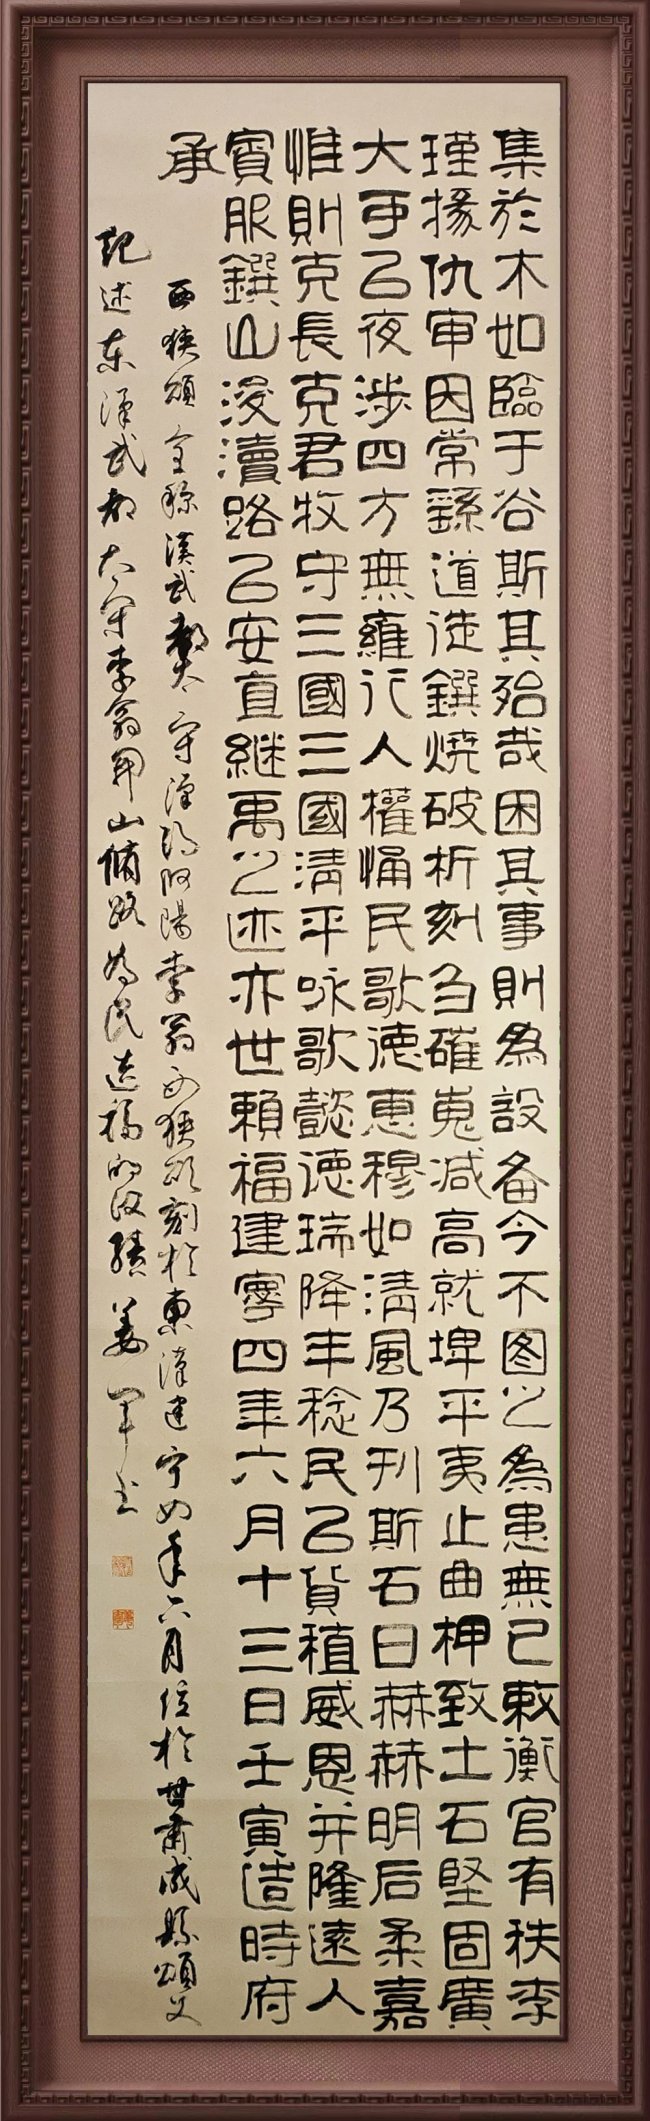 集於木如臨于谷斯其殆哉困其事則為設备今不图之為患無已敕衡官有秩李
瑾掾仇审因常繇道徒鐉燒破析刻臽磪嵬減高就埤平夷止曲柙致土石堅固廣
大可㠯夜涉四方無雍行人懽悀民歌德惠穆如清風乃刊斯石曰赫赫明后柔嘉
惟則克長克君牧守三國三國清平咏歌懿德瑞降丰稔民㠯貨稙威恩并隆遠人
賓服鐉山浚瀆路㠯安直継禹之迹亦世賴福建寧四年六月十三日壬寅造時府
承
西狹頌全稱漢武都太守漢陽阿陽李翕西狹頌刻於東漢建宁四年六月位於甘肅成縣頌文
記述东漢武都太守李翕開山脩路為民造福的政績 姜軍书